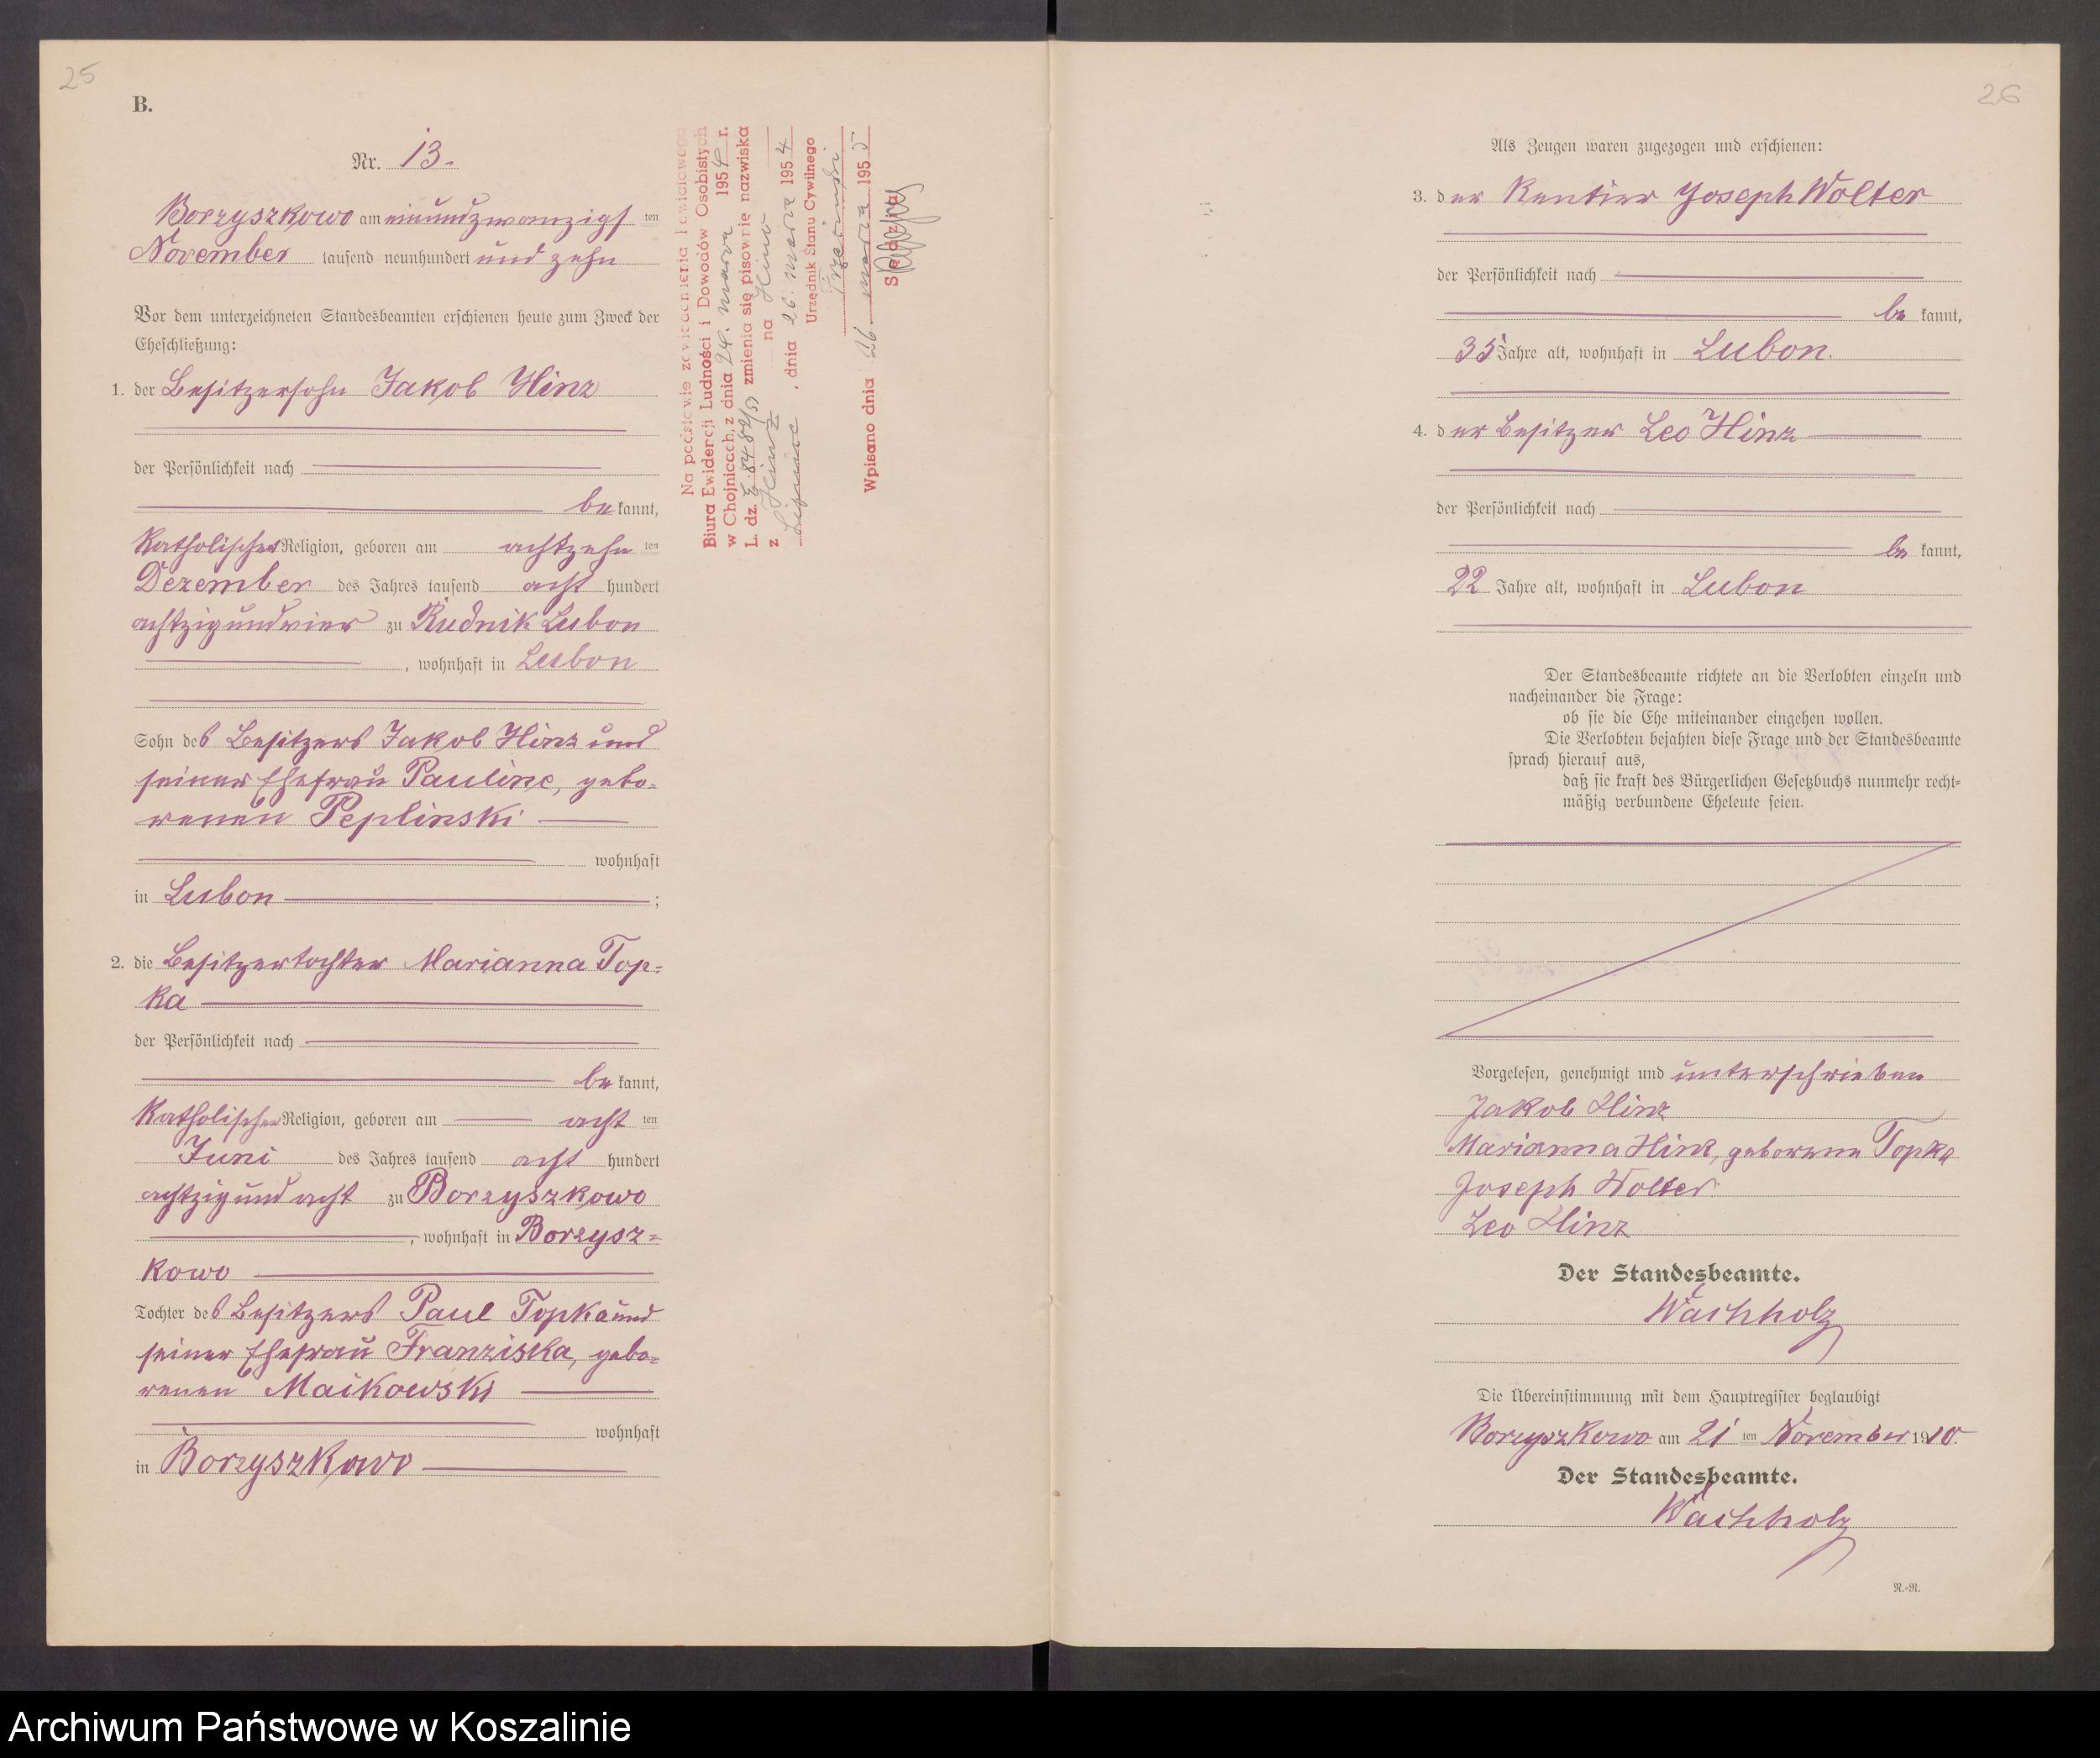 25
B.
Nr. 13.
Borzyszkowo am einundzwanzigs ten
November tausend neunhundert und zehn
Vor dem unterzeichneten Standesbeamten erschienen heute zum Zweck der
Eheschließung:
1. der Besitzersohn Jakob Hinz
der Persönlichkeit nach
be kannt,
katholischer Religion, geboren am achtzehn ten
Dezember des Jahres tausend acht hundert
achtzigundvier zu Rudnik Lubon
, wohnhaft in Lubon
Sohn des Besitzers Jakob Hinz und
seiner Ehefrau Pauline, gebo-
renen Peplinski
wohnhaft
in Lubon ;
2. die Besitzertochter Marianna Top-
ka
der Persönlichkeit nach
be kannt,
katholischer Religion, geboren am acht ten
Juni des Jahres tausend acht hundert
achtzigundacht zu Borzyszkowo
, wohnhaft in Borzysz-
kowo
Tochter des Besitzers Paul Topka und
seiner Ehefrau Franziska, gebo-
renen Maikowski
wohnhaft
in Borzyszkowo
Na podstawie zawiadomienia Powiatowego
Biura Ewidencji Ludności i Dowodów Osobistych
w Chojnicach, z dnia 24. marca 1954 r.
L. dz. zmienia się pisownię nazwiska
z Hinz na Hinc
Lipnica, dnia 26. marca 1954
Urzędnik Stanu Cywilnego
Wpisano dnia 26 marca 1955
Sędzia
26
Als Zeugen waren zugezogen und erschienen:
3. der Rentier Joseph Wolter
der Persönlichkeit nach
be kannt,
35 Jahre alt, wohnhaft in Lubon.
4. der Besitzer Leo Hinz
der Persönlichkeit nach
be kannt,
22 Jahre alt, wohnhaft in Lubon
Der Standesbeamte richtete an die Verlobten einzeln und
nacheinander die Frage:
ob sie die Ehe miteinander eingehen wollen.
Die Verlobten bejahten diese Frage und der Standesbeamte
sprach hierauf aus,
daß sie kraft des Bürgerlichen Gesetzbuchs nunmehr recht-
mäßig verbundene Eheleute seien.
Vorgelesen, genehmigt und unterschrieben
Jakob Hinz
Marianna Hinz, geborene Topka
Joseph Wolter
Leo Hinz
Der Standesbeamte.
Wachholz
Die Übereinstimmung mit dem Hauptregister beglaubigt
Borzyszkowo am 21 ten November 1910.
Der Standesbeamte.
Wachholz
N.-N.
Archiwum Państwowe w Koszalinie